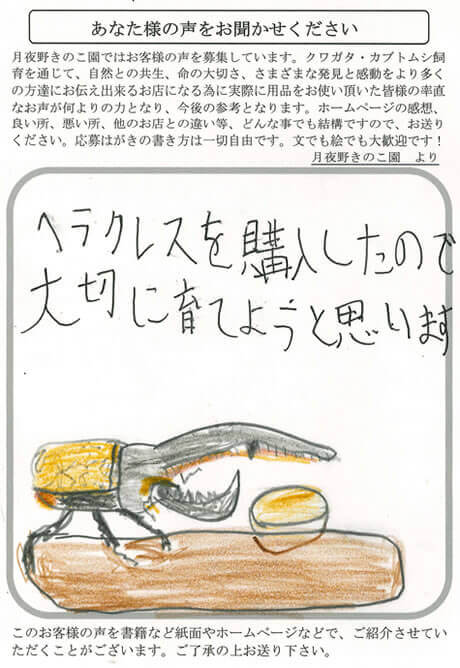 あなた様の声をお聞かせください
月夜野きのこ園ではお客様の声を募集しています。クワガタ・カブトムシ飼
育を通じて、自然との共生、命の大切さ、さまざまな発見と感動をより多く
の方達にお伝え出来るお店になる為に実際に用品をお使い頂いた皆様の率直
なお声が何よりの力となり、今後の参考となります。ホームページの感想、
良い所、悪い所、他のお店との違い等、どんな事でも結構ですので、お送り
ください。応募はがきの書き方は一切自由です。文でも絵でも大歓迎です！
月夜野きのこ園　より
ヘラクレスを購入したので
大切に育てようと思います
このお客様の声を書籍など紙面やホームページなどで、ご紹介させてい
ただくことがございます。ご了承の上お送り下さい。